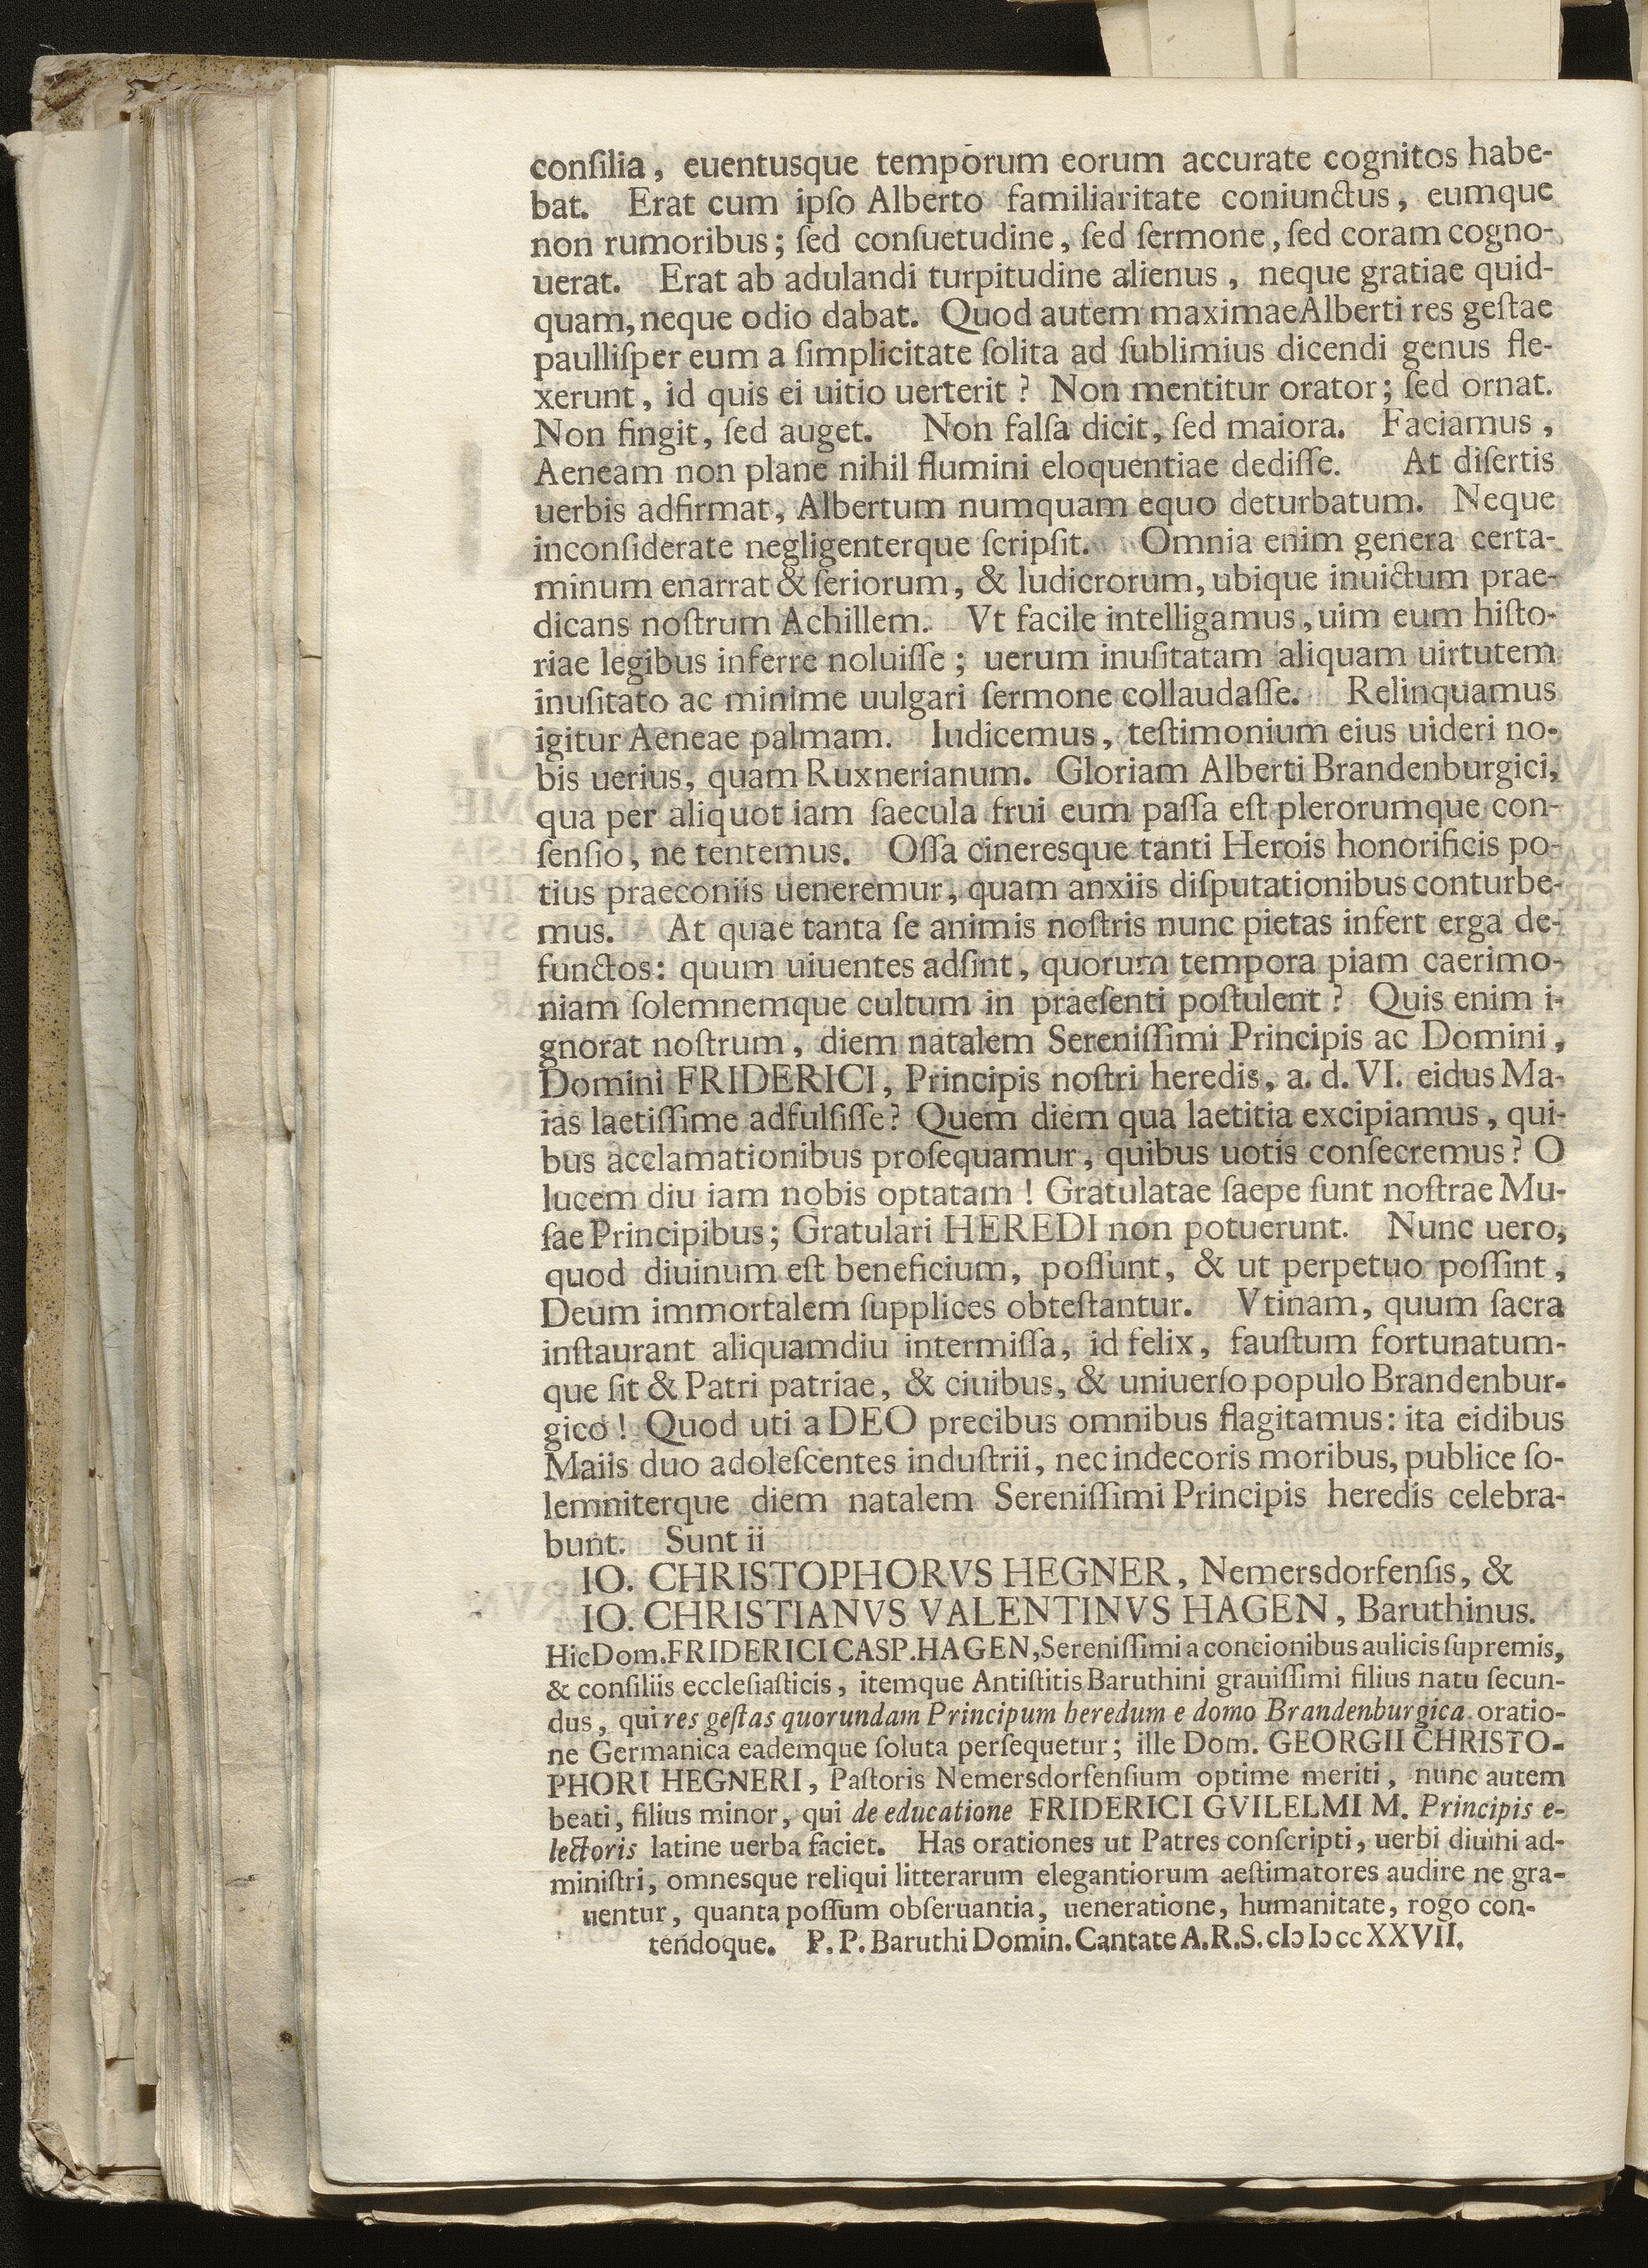 conſilia, euentusque temporum eorum accurate cognitos habe-
bat. Erat cum ipſo Alberto familiaritate coniunctus, eumque
non rumoribus; ſed conſuetudine, ſed ſermone, ſed coram cogno-
uerat. Erat ab adulandi turpitudine alienus, neque gratiae quid-
quam, neque odio dabat. Quod autem maximae Alberti res geſtae
paulliſper eum a ſimplicitate ſolita ad ſublimius dicendi genus fle-
xerunt, id quis ei uitio uerterit? Non mentitur orator; ſed ornat.
Non fingit, ſed auget. Non falſa dicit, ſed maiora. Faciamus,
Aeneam non plane nihil flumini eloquentiae dediſſe. At diſertis
uerbis adfirmat, Albertum numquam equo deturbatum. Neque
inconſiderate negligenterque ſcripſit. Omnia enim genera certa-
minum enarrat & ſeriorum, & ludicrorum, ubique inuictum prae-
dicans noſtrum Achillem. Vt facile intelligamus, uim eum hiſto-
riae legibus inferre noluiſſe; uerum inuſitatam aliquam uirtutem
inuſitato ac minime uulgari ſermone collaudaſſe. Relinquamus
igitur Aeneae palmam. Iudicemus, teſtimonium eius uideri no-
bis uerius, quam Ruxnerianum. Gloriam Alberti Brandenburgici,
qua per aliquot iam ſaecula frui eum paſſa eſt plerorumque con-
ſenſio, ne tentemus. Oſſa cineresque tanti Herois honorificis po-
tius praeconiis ueneremur, quam anxiis diſputationibus conturbe-
mus. At quae tanta ſe animis noſtris nunc pietas infert erga de-
functos: quum uiuentes adſint, quorum tempora piam caerimo-
niam ſolemnemque cultum in praeſenti poſtulent? Quis enim i-
gnorat noſtrum, diem natalem Sereniſſimi Principis ac Domini,
Domini FRIDERICI, Principis noſtri heredis, a. d. VI. eidus Ma-
ias laetiſſime adfulſiſſe? Quem diem qua laetitia excipiamus, qui-
bus acclamationibus proſequamur, quibus uotis conſecremus? O
lucem diu iam nobis optatam! Gratulatae ſaepe ſunt noſtrae Mu-
ſae Principibus; Gratulari HEREDI non potuerunt. Nunc uero,
quod diuinum eſt beneficium, poſſunt, & ut perpetuo poſſint,
Deum immortalem ſupplices obteſtantur. Vtinam, quum ſacra
inſtaurant aliquamdiu intermiſſa, id felix, fauſtum fortunatum-
que ſit & Patri patriae, & ciuibus, & uniuerſo populo Brandenbur-
gico! Quod uti a DEO precibus omnibus flagitamus: ita eidibus
Maiis duo adoleſcentes induſtrii, nec indecoris moribus, publice ſo-
lemniterque diem natalem Sereniſſimi Principis heredis celebra-
bunt. Sunt ii
IO. CHRISTOPHORVS HEGNER, Nemersdorfenſis, &
IO. CHRISTIANVS VALENTINVS HAGEN, Baruthinus.
Hic Dom. FRIDERICI CASP. HAGEN, Sereniſſimi a concionibus aulicis ſupremis,
& conſiliis eccleſiaſticis, itemque Antiſtitis Baruthini grauiſſimi filius natu ſecun-
dus, qui res geſtas quorundam Principum heredum e domo Brandenburgica oratio-
ne Germanica eademque ſoluta perſequetur; ille Dom. GEORGII CHRISTO-
PHORI HEGNERI, Paſtoris Nemersdorfenſium optime meriti, nunc autem
beati, filius minor, qui de educatione FRIDERICI GVILELMI M. Principis e-
lectoris latine uerba faciet. Has orationes ut Patres conſcripti, uerbi diuini ad-
miniſtri, omnesque reliqui litterarum elegantiorum aeſtimatores audire ne gra-
uentur, quanta poſſum obſeruantia, ueneratione, humanitate, rogo con-
tendoque. P. P. Baruthi Domin. Cantate A. R. S. cIↄ Iↄ cc XXVII.